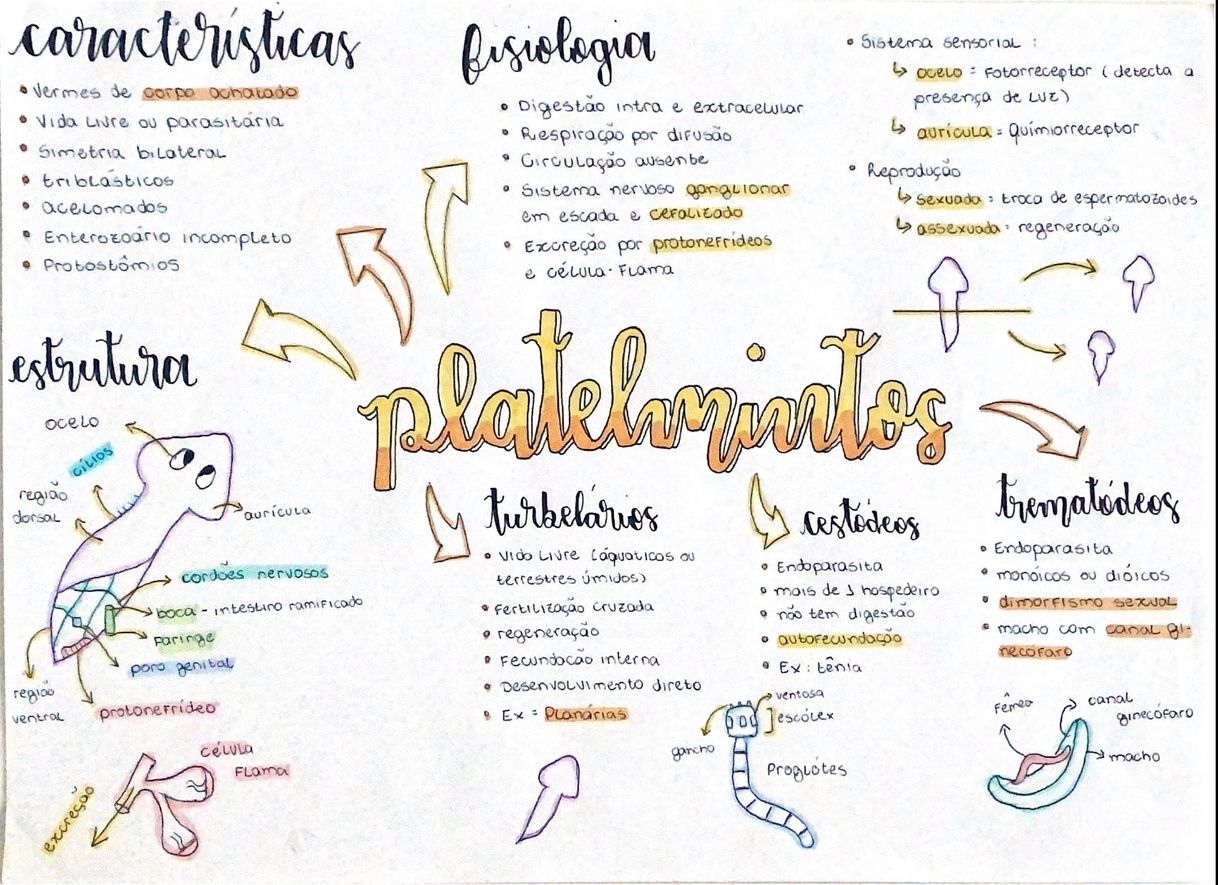 características
• Vermes de corpo achatado
• Vida livre ou parasitária
• Simetria bilateral
• triblásticos
• acelomados
• Enterozoário incompleto
• Protostômios
fisiologia
• Digestão intra e extracelular
• Respiração por difusão
• Circulação ausente
• Sistema nervoso ganglionar
em escada e cefalizado
• Excreção por protonefrídeos
e célula-flama
• Sistema sensorial :
↳ ocelo = Fotorreceptor (detecta a
presença de luz)
↳ aurícula = Químiorreceptor
• Reprodução
↳ sexuada : troca de espermatozoides
↳ assexuada : regeneração
platelmintos
estrutura
ocelo
cílios
região
dorsal
aurícula
cordões nervosos
boca - intestino ramificado
faringe
poro genital
região
ventral
protonefrídeo
célula
flama
excreção
turbelários
• Vida livre (áquaticos ou
terrestres úmidos)
• fertilização cruzada
• regeneração
• Fecundacão interna
• Desenvolvimento direto
• Ex = Planárias
cestódeos
• Endoparasita
• mais de 1 hospedeiro
• não tem digestão
• autofecundação
• Ex : tênia
ventosa
escólex
gancho
Proglótes
trematódeos
• Endoparasita
• monóicos ou dióicos
• dimorfismo sexual
• macho com canal gi-
necófaro
fêmea
canal
ginecófaro
macho